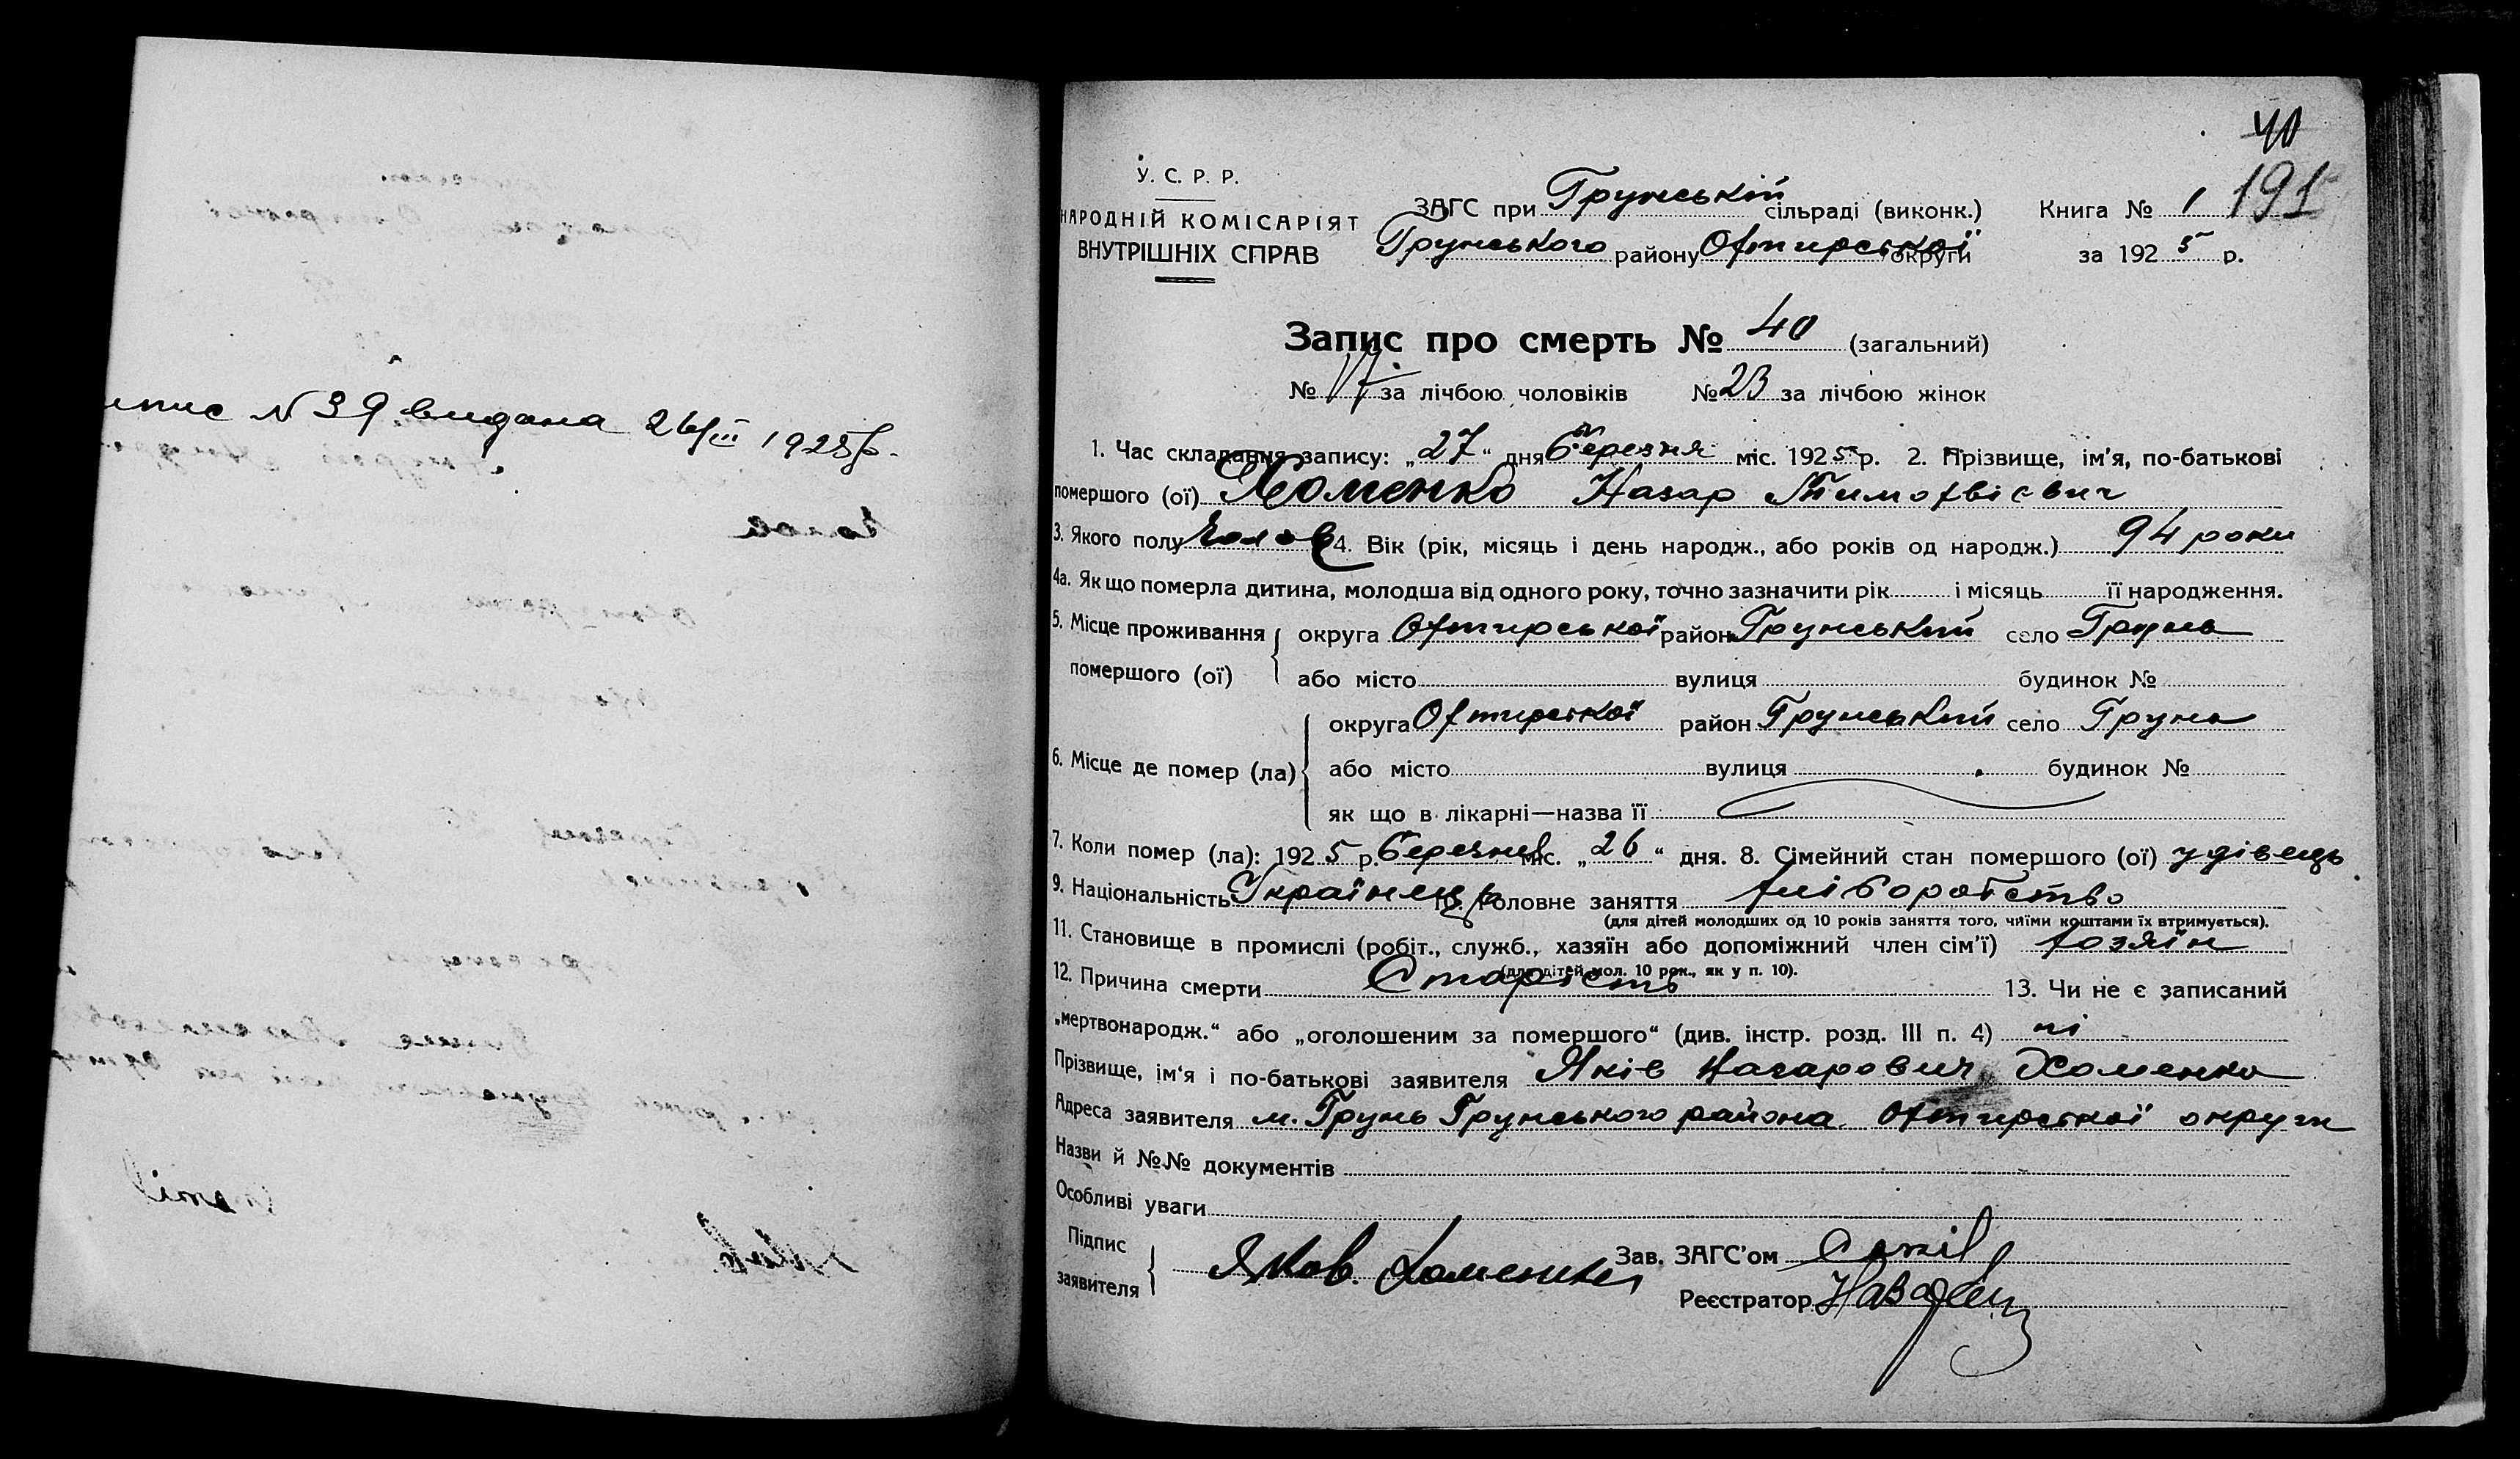 N 39 видана 26/III 1925 р.
40
У. С. Р. Р.
НАРОДНІЙ КОМІСАРІЯТ
ВНУТРІШНІХ СПРАВ
ЗАГС при Грунській сільраді (виконк.)
Грунського району Охтирської округи
Книга № 1 191
за 192 5 р.
Запис про смерть № 40 (загальний)
№ 17 за лічбою чоловіків № 23 за лічбою жінок
1. Час складання запису: „27“ дня березня міс. 192 5 р. 2. Прізвище, ім'я, по-батькові
помершого (ої) Хоменко Назар Тимофвієвич
3. Якого полу чолов 4. Вік (рік, місяць і день народж., або років од народж.) 94 роки
4а. Як що померла дитина, молодша від одного року, точно зазначити рік і місяць її народження.
5. Місце проживання помершого (ої) { округа Охтирської район Грунський село Грунь
або місто вулиця будинок №
6. Місце де помер (ла) { округа Охтирської район Грунський село Грунь
або місто вулиця будинок №
як що в лікарні—назва її
7. Коли помер (ла): 192 5 р. березня міс. „26“ дня. 8. Сімейний стан помершого (ої) удівець
9. Національність Українець 10. Головне заняття хліборобство
(для дітей молодших од 10 років заняття того, чиїми коштами їх втримується).
11. Становище в промислі (робіт., служб., хазяїн або допоміжний член сім'ї) хозяїн
(для дітей мол. 10 рок., як у п. 10).
12. Причина смерти Старість 13. Чи не є записаний
„мертвонародж.“ або „оголошеним за помершого“ (див. інстр. розд. III п. 4) ні
Прізвище, ім'я і по-батькові заявителя Яків Назарович Хоменко
Адреса заявителя м. Грунь Грунського района Охтирської округи
Назви й №№ документів
Особливі уваги
Підпис заявителя } Яков. Хоменко
Зав. ЗАГС'ом
Реєстратор